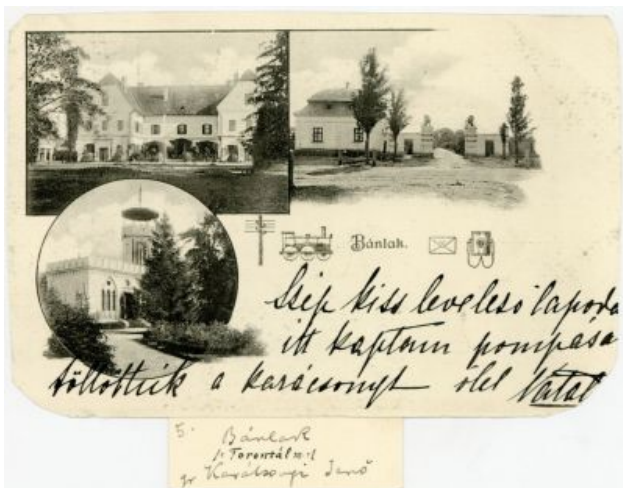 Bánlak.
Szép kiss levelező lapoda
itt kaptam pompása
töltöttük a karácsonyt ölel Natal
5.
Bánlak
/: Torontál m :/
gr Karátsonyi Jenő